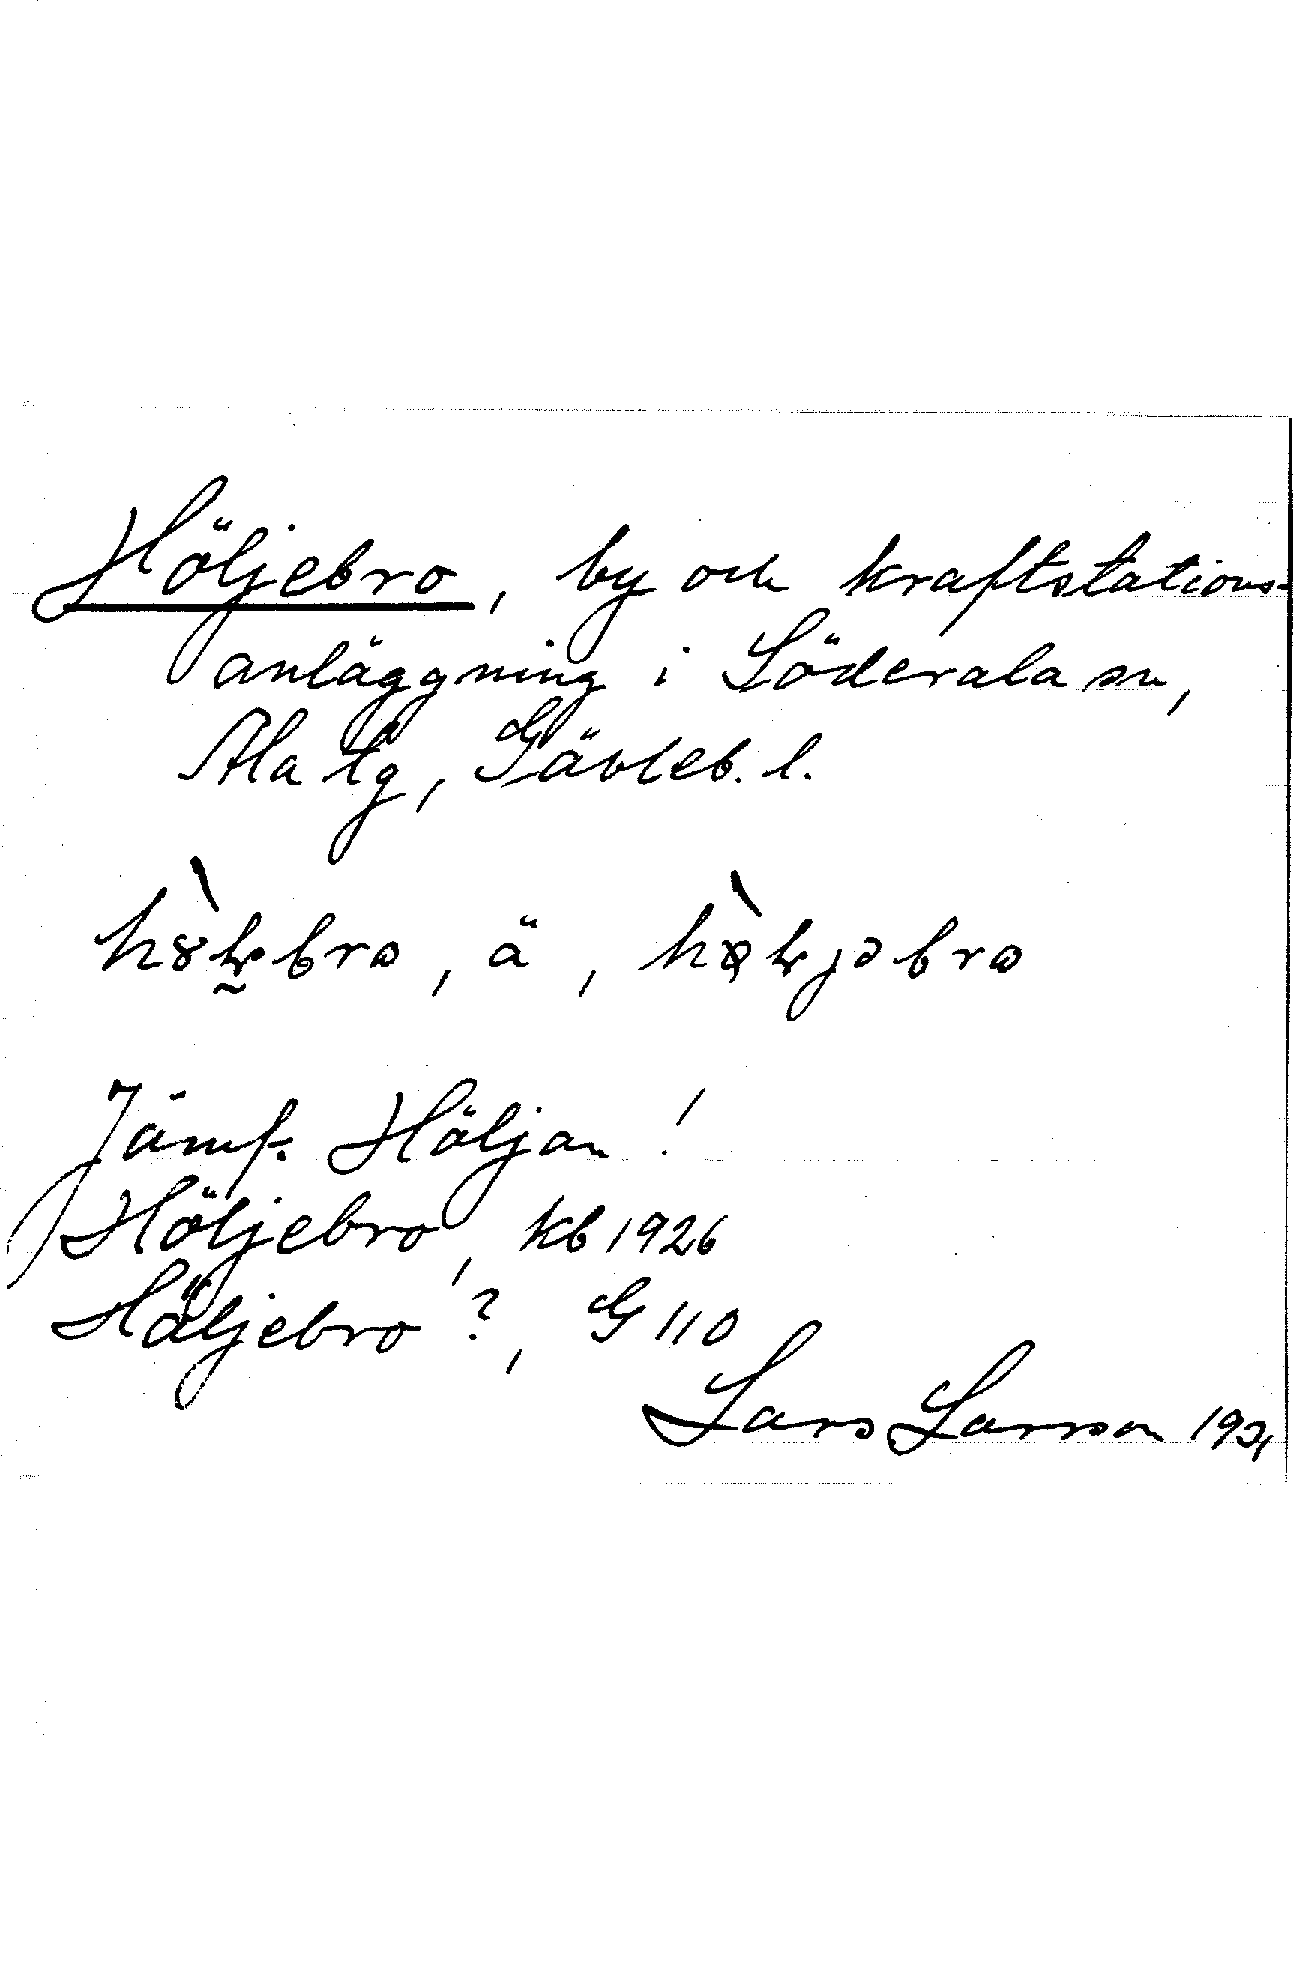 Höljebro, by och kraftstations-
anläggning i Söderala sn,
Ala tg, Gävleb. l.
, ä,
Jämf. Höljan!
Höljebro, kb 1926
Höljebro?, G 110
Lars Larsson